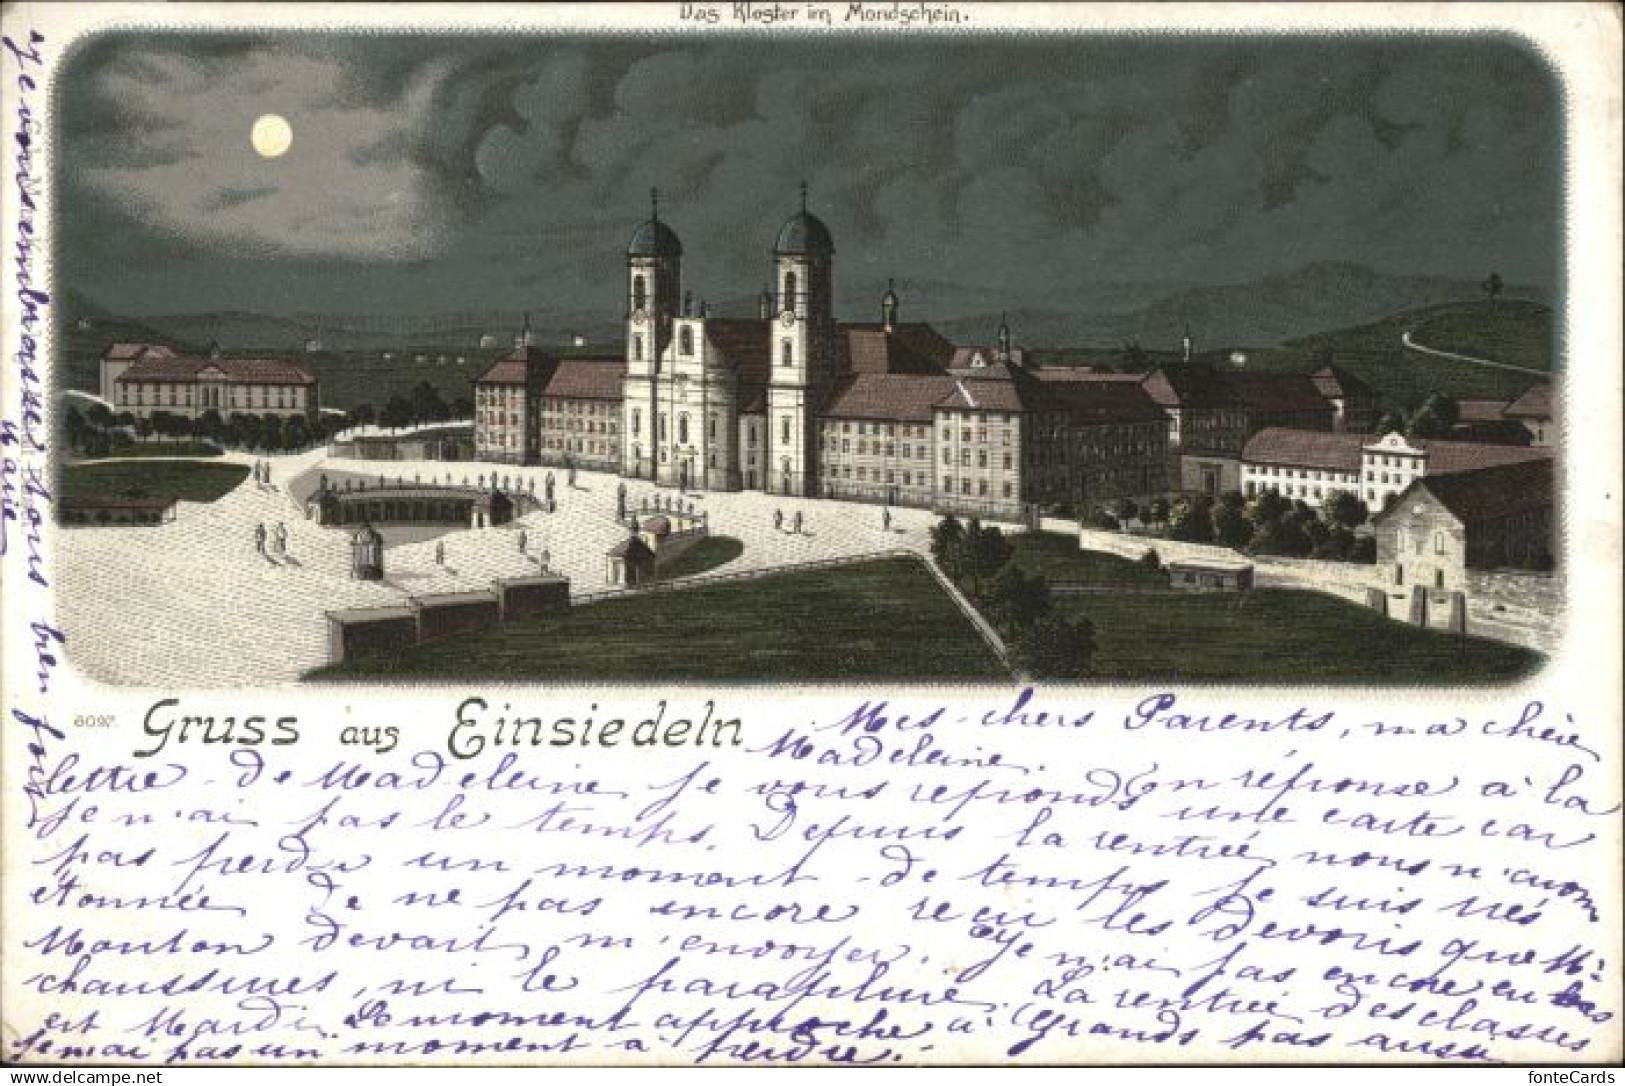 Das Kloster im Mondschein.
Gruss aus Einsiedeln
Mes chers Parents, ma chère
Madeleine. En réponse à la
lettre de Madeleine je vous reponds une carte car
je n'ai pas le temps. Depuis la rentrée nous n'avons
pas perdu un moment de temps je suis très
étonnée de ne pas encore reçu les devoirs que Mr
Mouton devait m'envoyer. Je n'ai pas encore eu
chaussures, ni le parapluie. La rentrée des classes
est Mardi. Le moment approche à grands pas aussi
je n'ai pas un moment à perdre.
Je vous embrasse tous bien fort
Marie
fonteCards